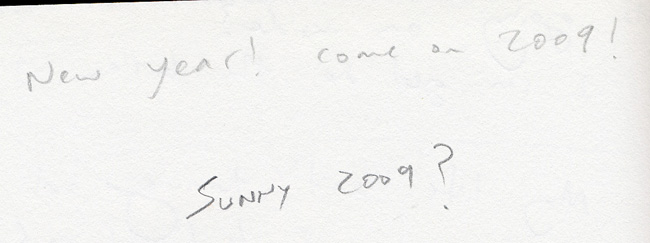 New year! come on 2009!
Sunny 2009?